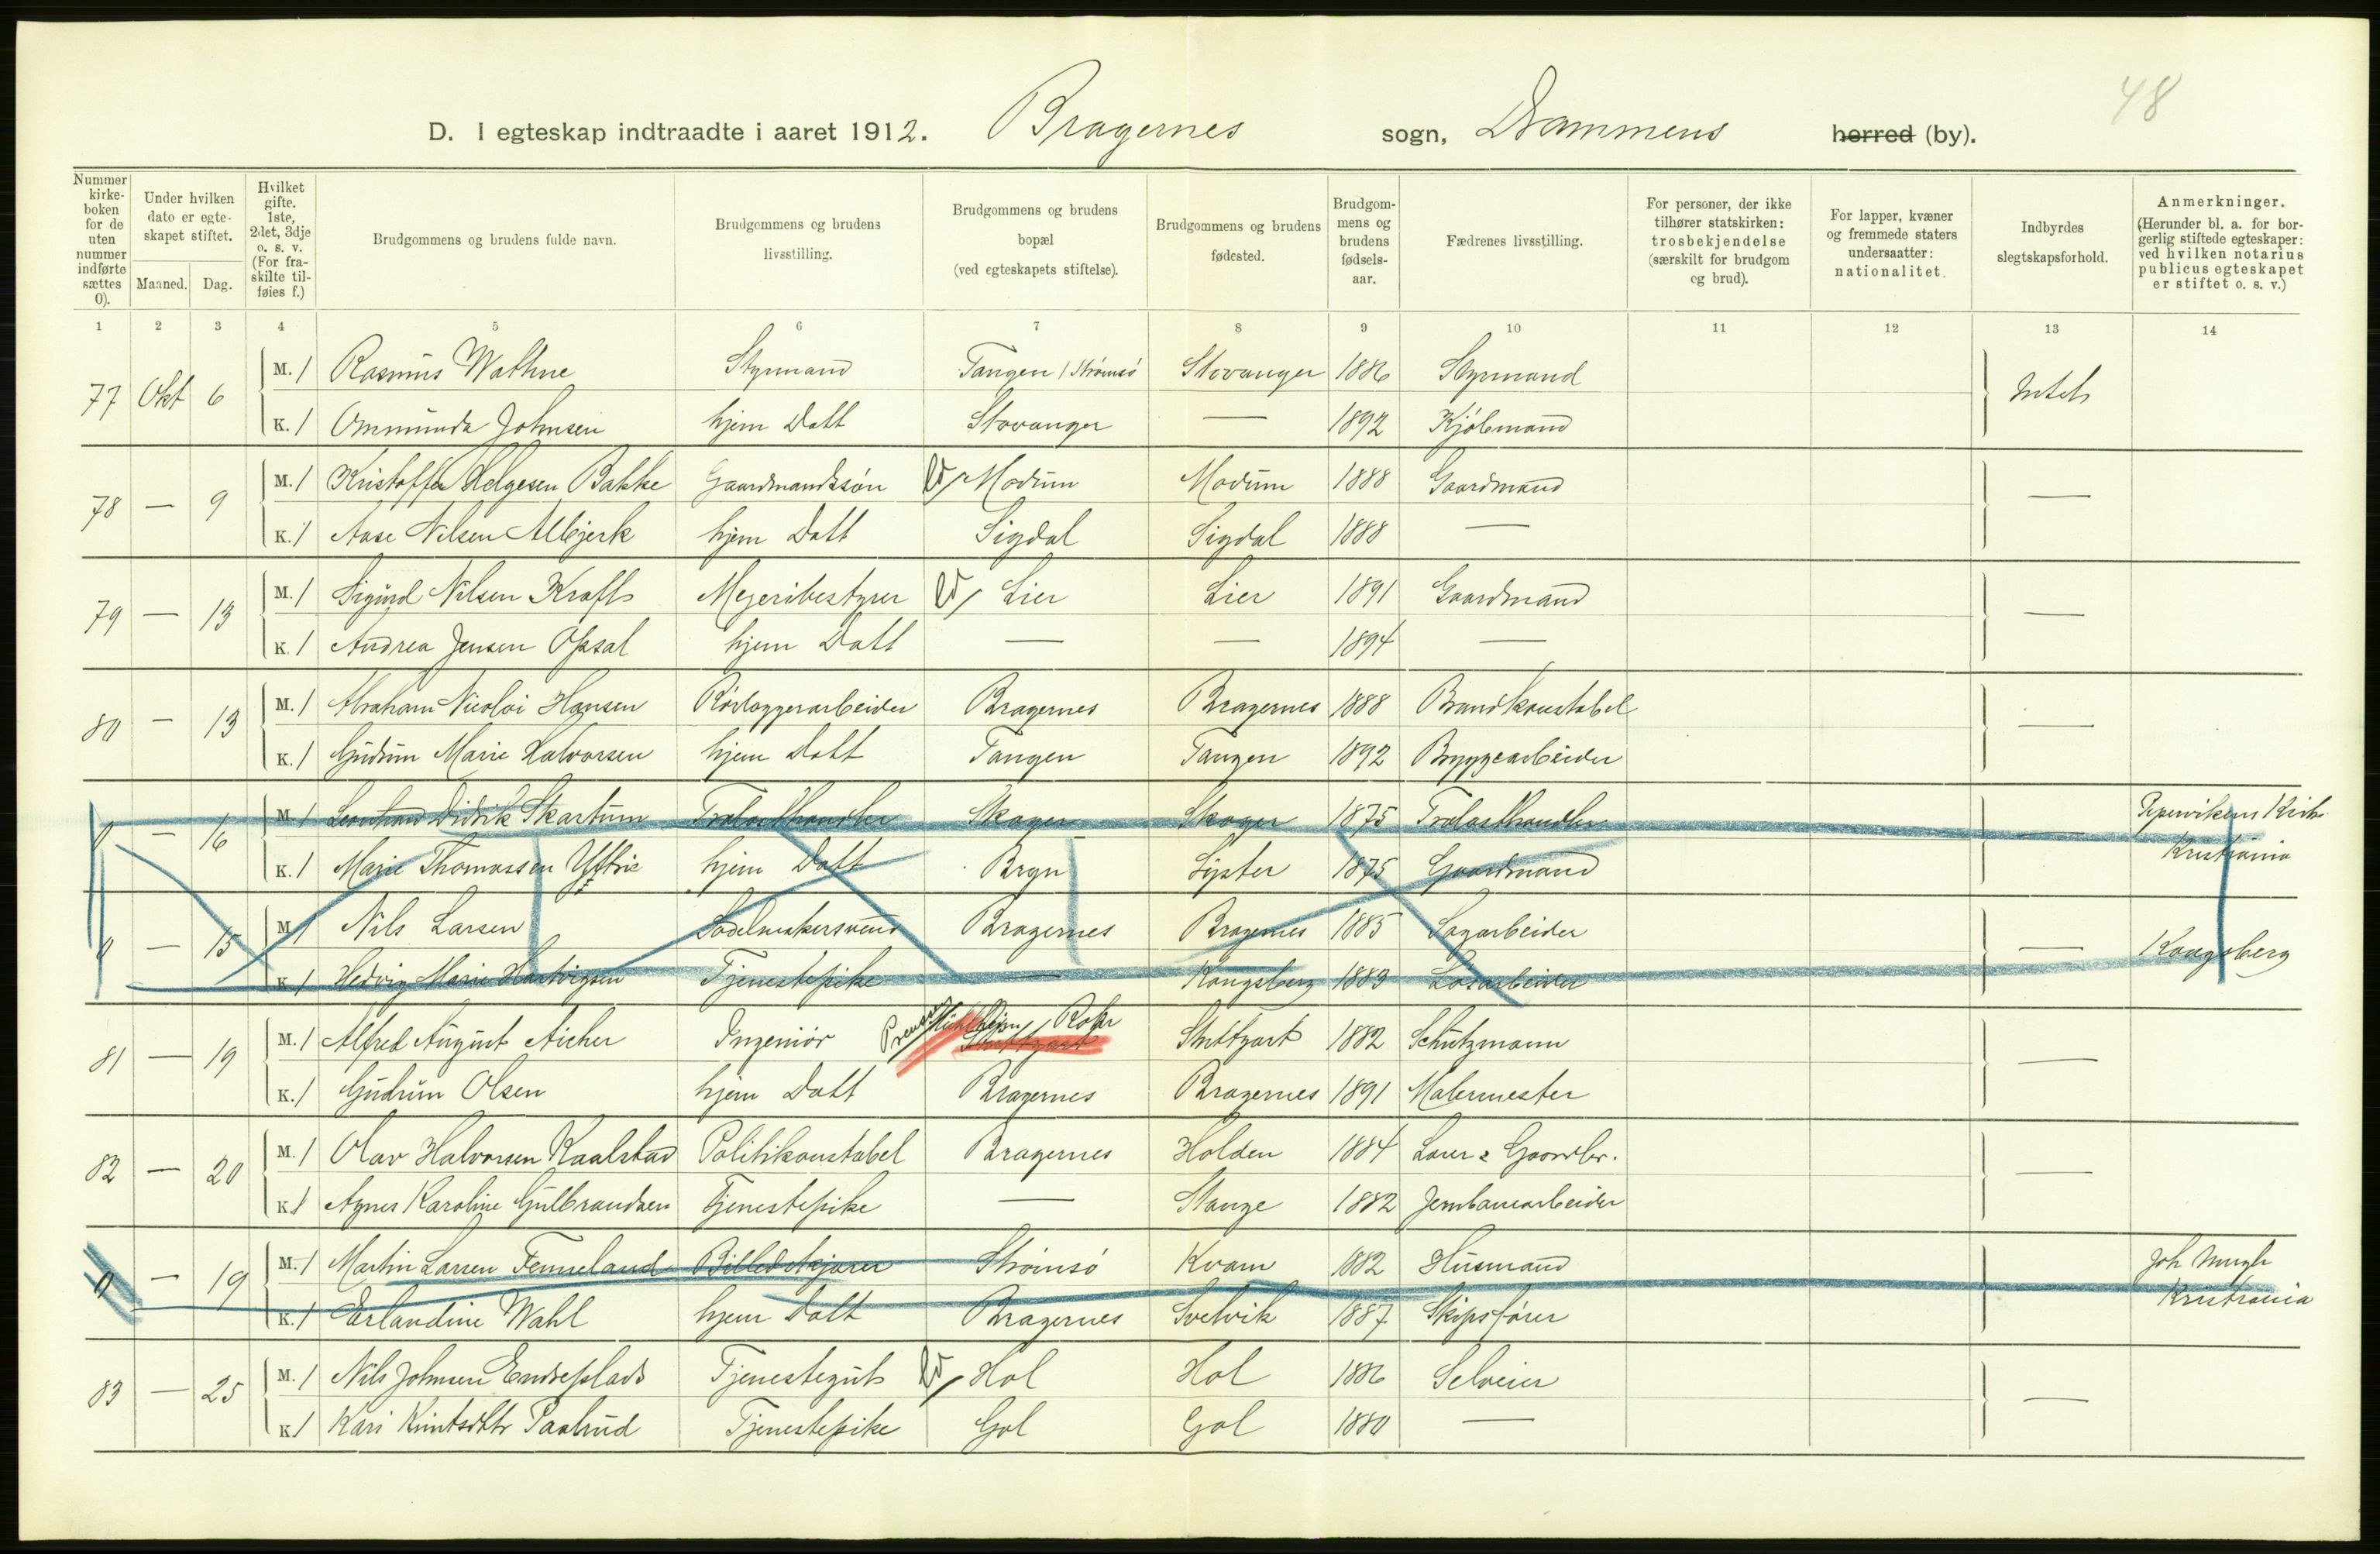 48
D. I egteskap indtraadte i aaret 1912. Bragernes sogn, Drammens herred (by).
Nummer kirkeboken for de uten nummer indførte sættes 0).
Under hvilken dato er egteskapet stiftet.
Maaned. Dag.
Hvilket gifte. 1ste, 2det, 3dje o. s. v. (For fraskilte tilføies f.)
Brudgommens og brudens fulde navn.
Brudgommens og brudens livsstilling.
Brudgommens og brudens bopæl (ved egteskapets stiftelse).
Brudgommens og brudens fødested.
Brudgommens og brudens fødselsaar.
Fædrenes livsstilling.
For personer, der ikke tilhører statskirken: trosbekjendelse (særskilt for brudgom og brud).
For lapper, kvæner og fremmede staters undersaatter: nationalitet.
Indbyrdes slegtskapsforhold.
Anmerkninger. (Herunder bl. a. for borgerlig stiftede egteskaper: ved hvilken notarius publicus egteskapet er stiftet o. s. v.)
1 2 3 4 5 6 7 8 9 10 11 12 13 14
77 Okt 6 M. 1 Rasmus Wathne Styrmand Tangen / Strømsø Stavanger 1886 Styrmand Intet
K. 1 Ommunda Johnsen hjem Datt Stavanger — 1892 Kjøbmand
78 — 9 M. 1 Kristoffer Helgesen Bakke Gaardmandssøn Modum Modum 1888 Gaardmand —
K. 1 Aase Nilsen Albjerk hjem Datt Sigdal Sigdal 1888 —
79 — 13 M. 1 Sigurd Nilsen Kraft Mejeribestyrer Lier Lier 1891 Gaardmand —
K. 1 Andrea Jensen Opsal hjem Datt — — 1894 —
80 — 13 M. 1 Abraham Nicolai Hansen Rørlæggerarbeider Bragernes Bragernes 1888 Brandkonstabel —
K. 1 Gudrun Marie Halvorsen hjem Datt Tangen Tangen 1892 Byggearbeider
0 — 16 M. 1 Didrik Skartum Trælasthandler Skoger Skoger 1875 Trælasthandler — Pipervikens Kirke
K. 1 Marie Thomassen Yttrie hjem Datt Bryn Lyster 1875 Gaardmand Kristiania
0 — 15 M. 1 Nils Larsen Sadelmakersvend Bragernes Bragernes 1885 Sagarbeider — Kongsberg
K. 1 Hedvig Marie Hartvigsen Tjenestepike — Kongsberg 1883 Løsarbeider
81 — 19 M. 1 Alfred August Aicher Ingeniør Preussen Mühlheim Rohr Stuttgart Stuttgart 1882 Schutzmann —
K. 1 Gudrun Olsen hjem Datt Bragernes Bragernes 1891 Malermester
82 — 20 M. 1 Olav Halvorsen Kaalstad Politikonstabel Bragernes Holden 1884 Lærer & Gaardbr. —
K. 1 Agnes Karoline Gulbrandsen Tjenestepike — Stange 1882 Jernbanearbeider
0 — 19 M. 1 Martin Larsen Femseland Billedskjærer Strømsø Kvam 1882 Husmand Joh
K. 1 Erlandine Wahl hjem Datt Bragernes Svelvik 1887 Skipsfører Kristiania
83 — 25 M. 1 Nils Johnsen Endreplads Tjenestegut Hol Hol 1886 Selveier —
K. 1 Kari Kintsdtr Paalrud Tjenestepike Gol Gol 1880 —